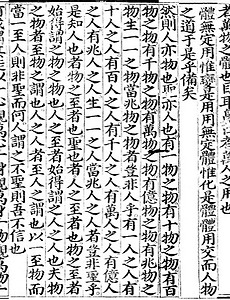 體無定用惟變是用用無定體惟化是體體用交而人物
之道于是乎備矣
然則人亦物也聖亦人也有一物之物有十物之物有百
物之物有千物之物有萬物之物有億物之物有兆物之
物生一一之物當兆物之物者豈非人乎有一人之人有
十人之人有百人之人有千人之人有萬人之人有億人
之人有兆人之人生一一之人當兆人之人者豈非聖乎
是知人也者物之至者也聖也者人之至者也物之至者
始得謂之物之物也人之至者始得謂之人之人也夫物
之物者至物之謂也人之人者至人之謂也以一至物而
當一至人則非聖而何人謂之不聖則吾不信也